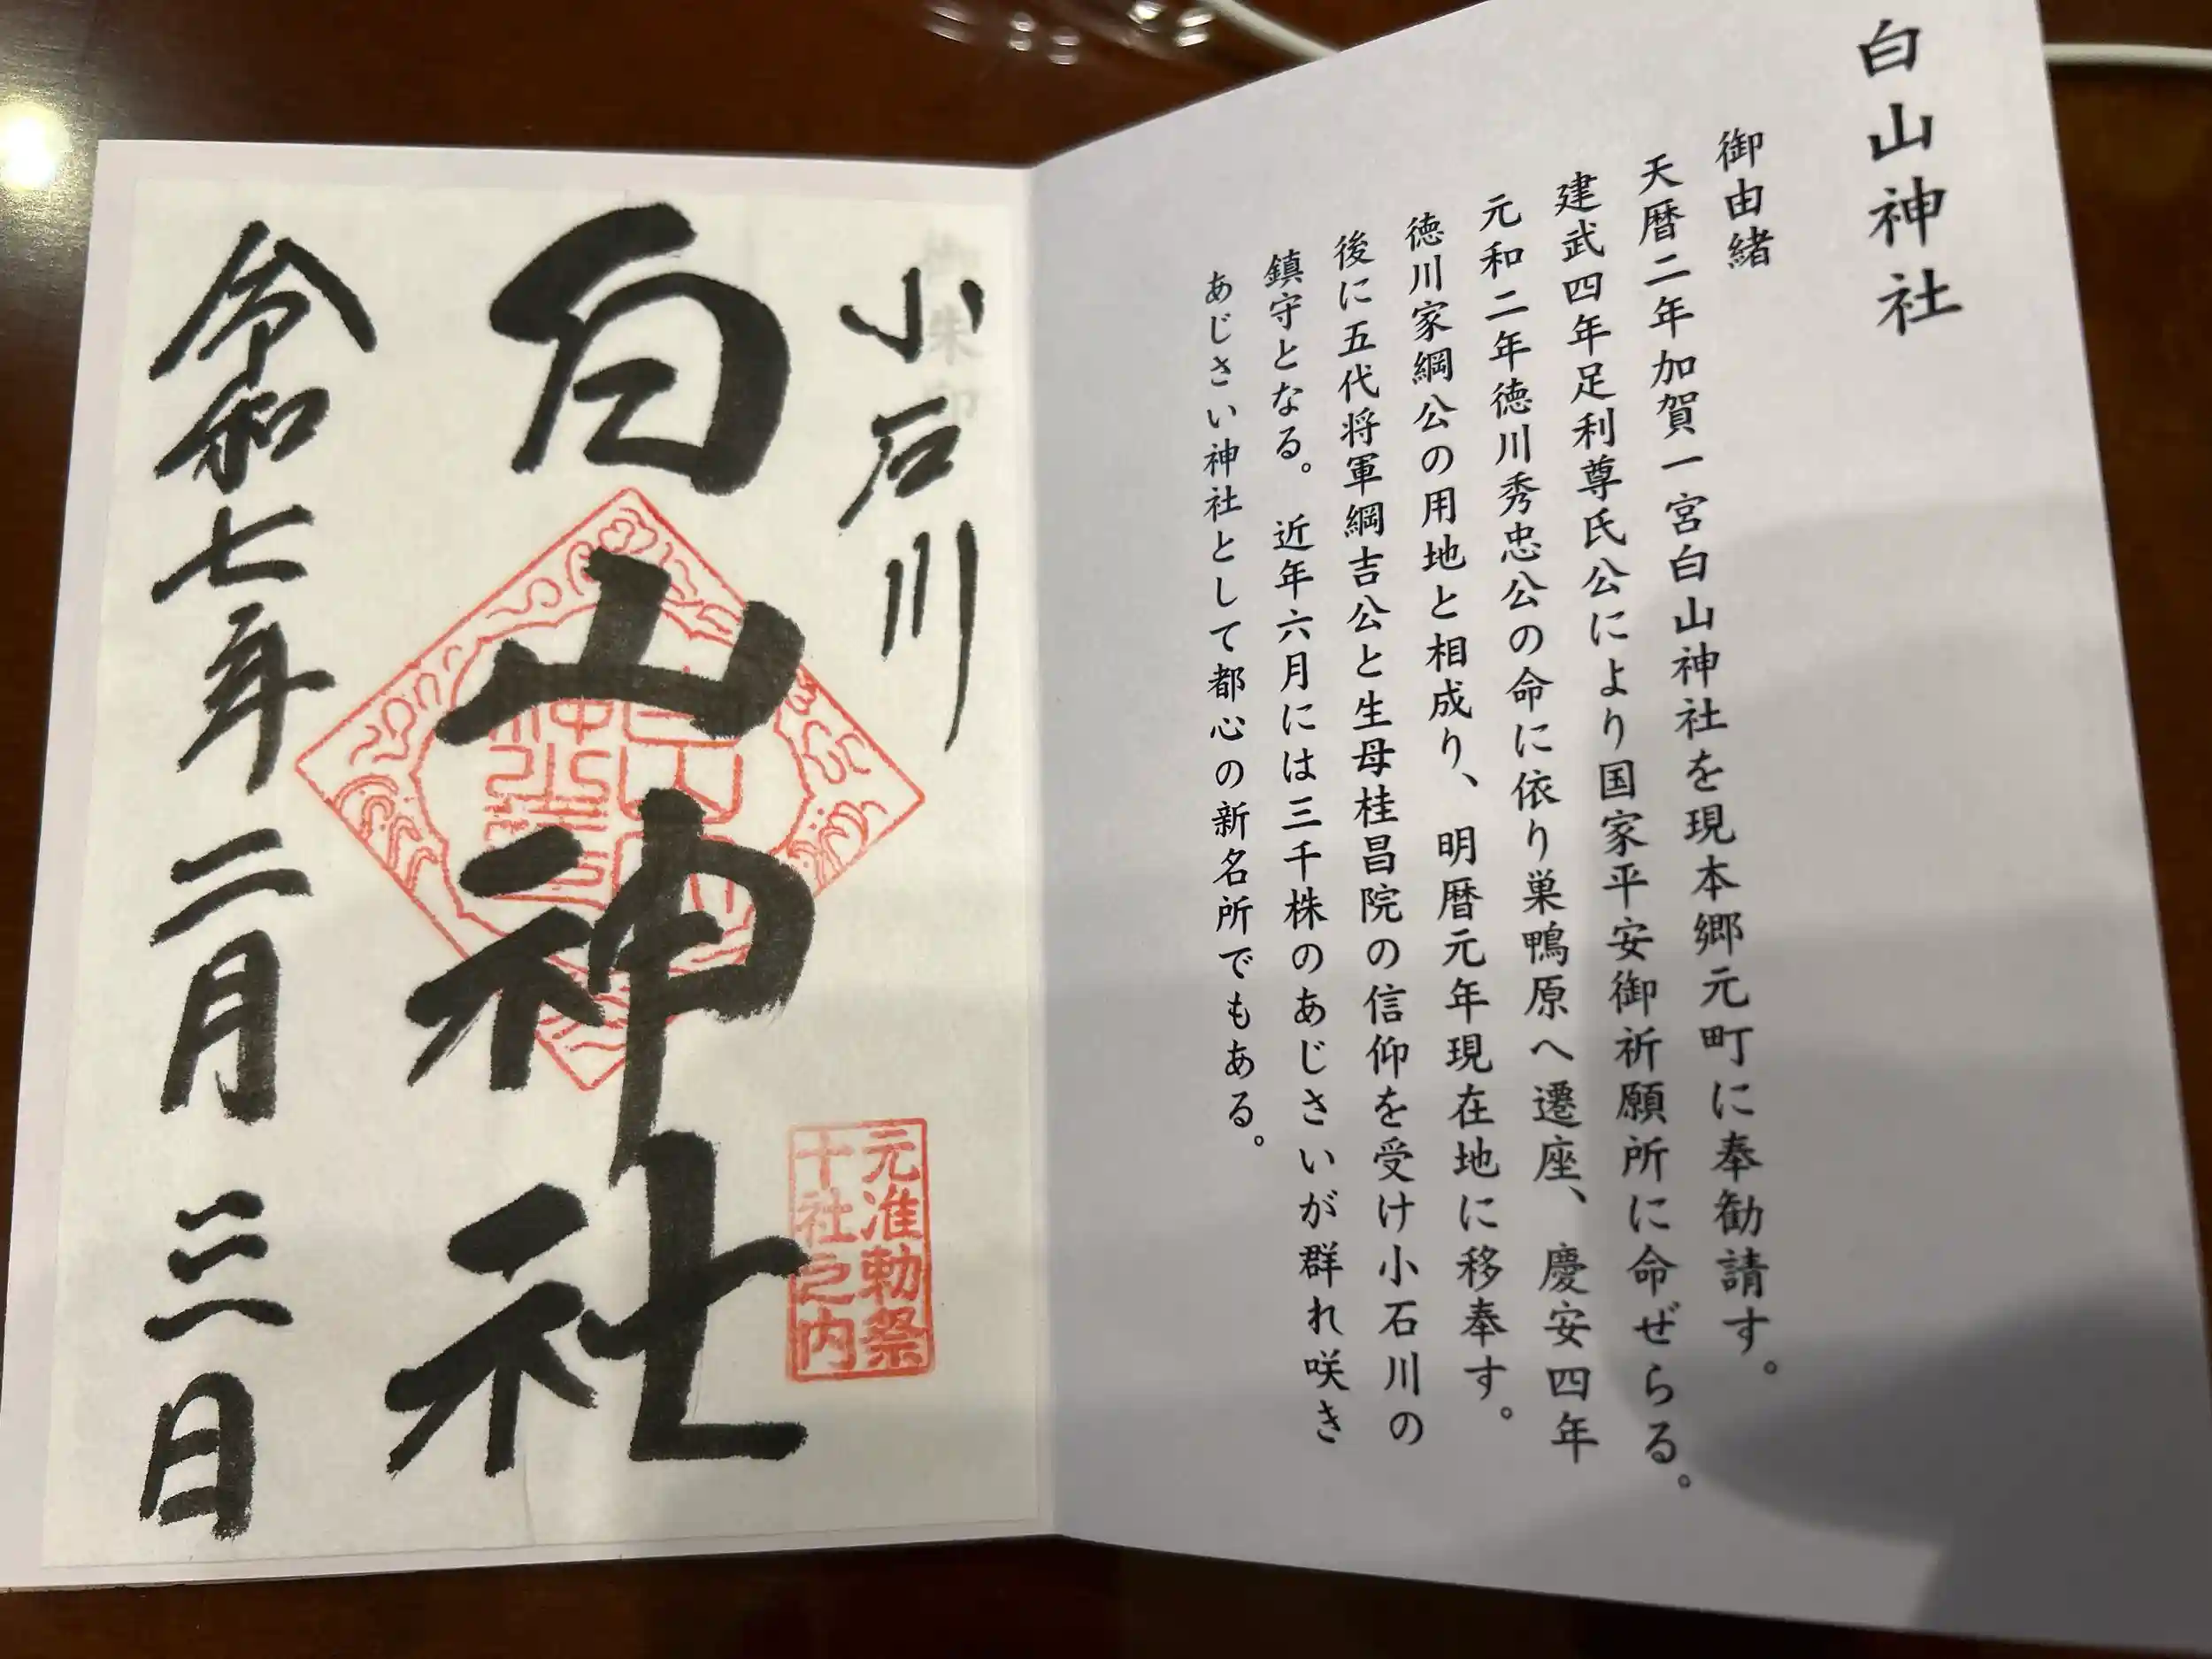 白山神社
御由緒
天暦二年加賀一宮白山神社を現本郷元町に奉勧請す。
建武四年足利尊氏公により国家平安御祈願所に命ぜらる。
元和二年徳川秀忠公の命に依り巣鴨原へ遷座、慶安四年
徳川家綱公の用地と相成り、明暦元年現在地に移奉す。
後に五代将軍綱吉公と生母桂昌院の信仰を受け小石川の
鎮守となる。近年六月には三千株のあじさいが群れ咲き
あじさい神社として都心の新名所でもある。
小石川
元准勅祭
十社之内
白山神社
令和七年二月三日